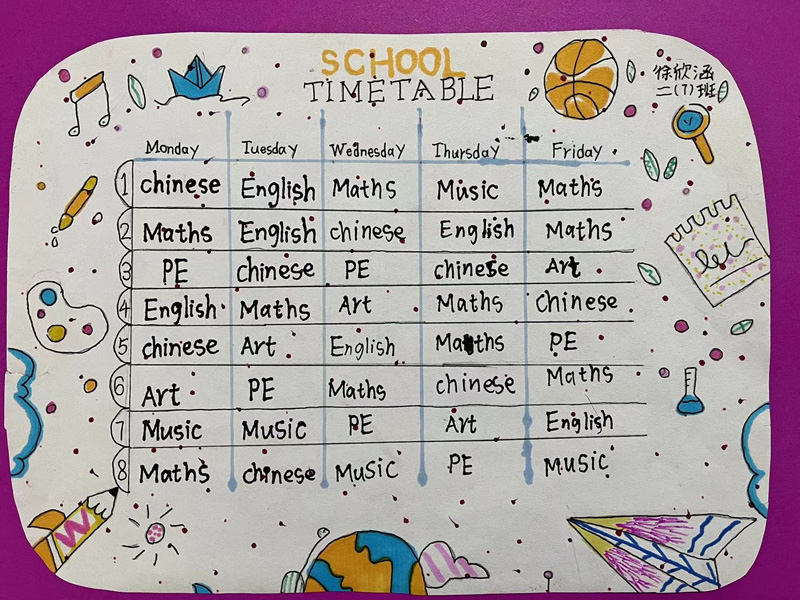 SCHOOL
TIMETABLE
徐欣涵
二(7)班
Monday Tuesday Wednesday Thursday Friday
1 chinese English Maths Music Maths
2 Maths English chinese English Maths
3 PE chinese PE chinese Art
4 English Maths Art Maths Chinese
5 chinese Art English Maths PE
6 Art PE Maths chinese Maths
7 Music Music PE Art English
8 Maths chinese Music PE Music